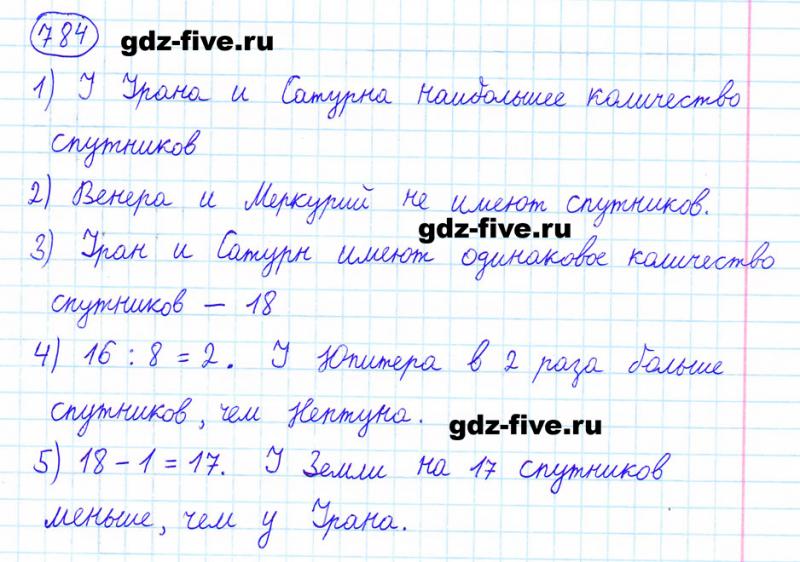 784 gdz-five.ru
1) У Урана и Сатурна наибольшее количество
спутников
2) Венера и Меркурий не имеют спутников.
gdz-five.ru
3) Уран и Сатурн имеют одинаковое количество
спутников – 18
4) 16 : 8 = 2. У Юпитера в 2 раза больше
спутников, чем Нептуна.
gdz-five.ru
5) 18 – 1 = 17. У Земли на 17 спутников
меньше, чем у Урана.